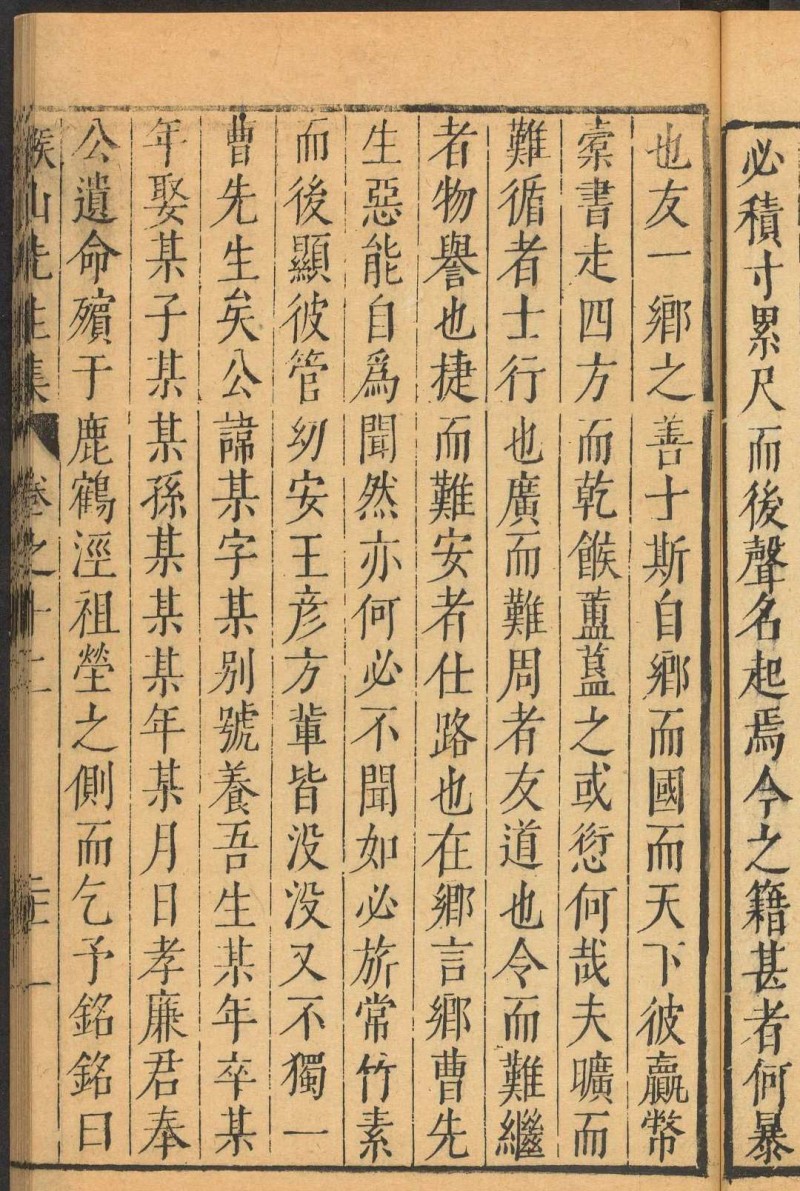 必積寸累尺而後聲名起焉今之籍甚者何暴
也友一鄉之善士斯自鄉而國而天下彼羸幣
橐書走四方而乾餱蓲䔖之或愆何哉夫曠而
難循者士行也廣而難周者友道也令而難繼
者物譽也捷而難安者仕路也在鄉言鄉曹先
生惡能自爲聞然亦何必不聞如必旂常竹素
而後顯彼管幼安王彦方輩皆没没又不獨一
曹先生矣公諱某字某别號養吾生某年卒某
年娶某子某某孫某某某年某月日孝廉君奉
公遺命殯于鹿鶴涇祖塋之側而乞予銘銘曰
緱山先生集
卷之十二